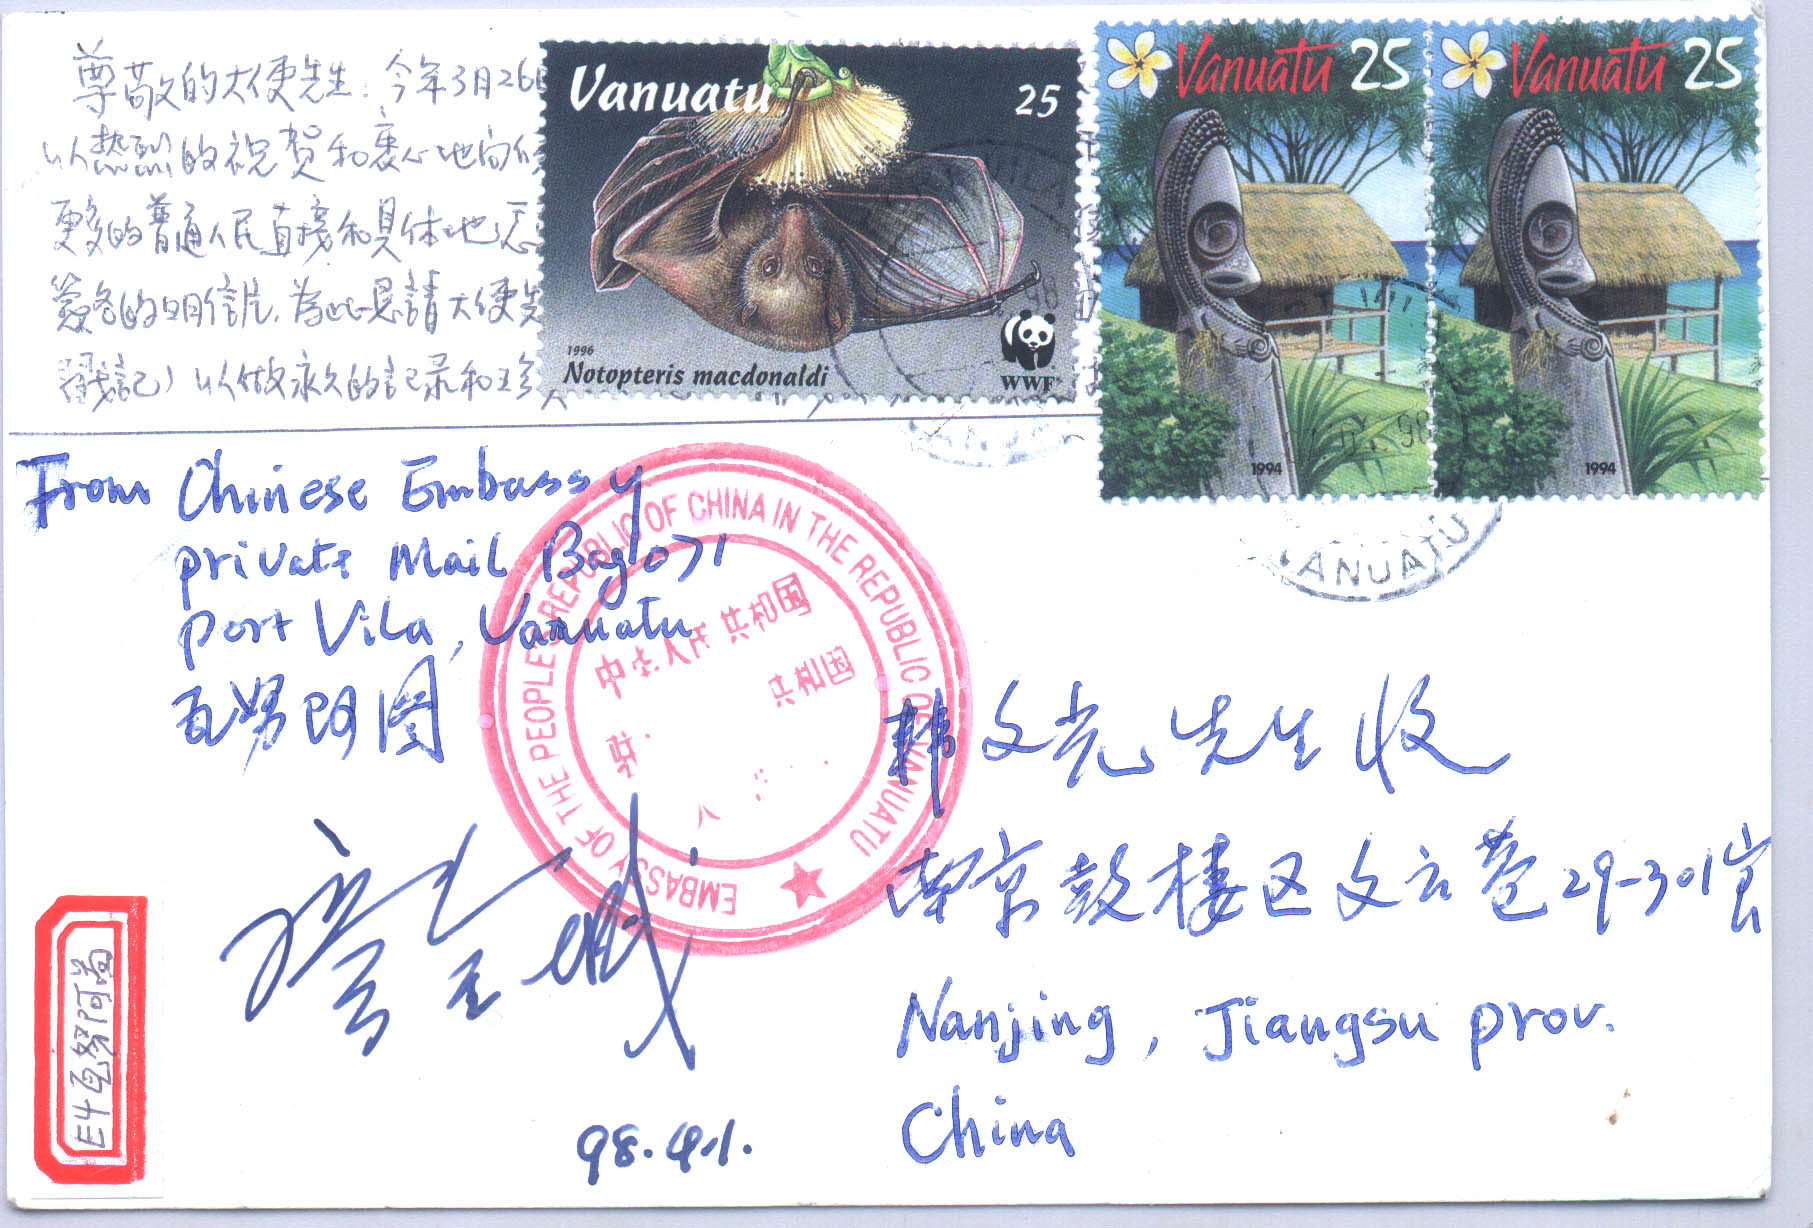 尊敬的大使先生：今年3月26
以热烈的祝贺和衷心地向
更多的普通人民直接和具体地
簽名的明信片，為此恳請大使先
戳記）以做永久的記录和珍
Vanuatu 25
1996
Notopteris macdonaldi
WWF
Vanuatu 25
1994
Vanuatu 25
1994
98
98
VANUATU
From Chinese Embassy
private Mail Bag 071
Port Vila, Vanuatu
瓦努阿图
EMBASSY OF THE PEOPLE'S REPUBLIC OF CHINA IN THE REPUBLIC OF VANUATU
中华人民共和国
驻 共和国
韩文光先生收
南京鼓楼区文云巷29-301室
Nanjing, Jiangsu prov.
China
98.4.1.
E4瓦努阿图